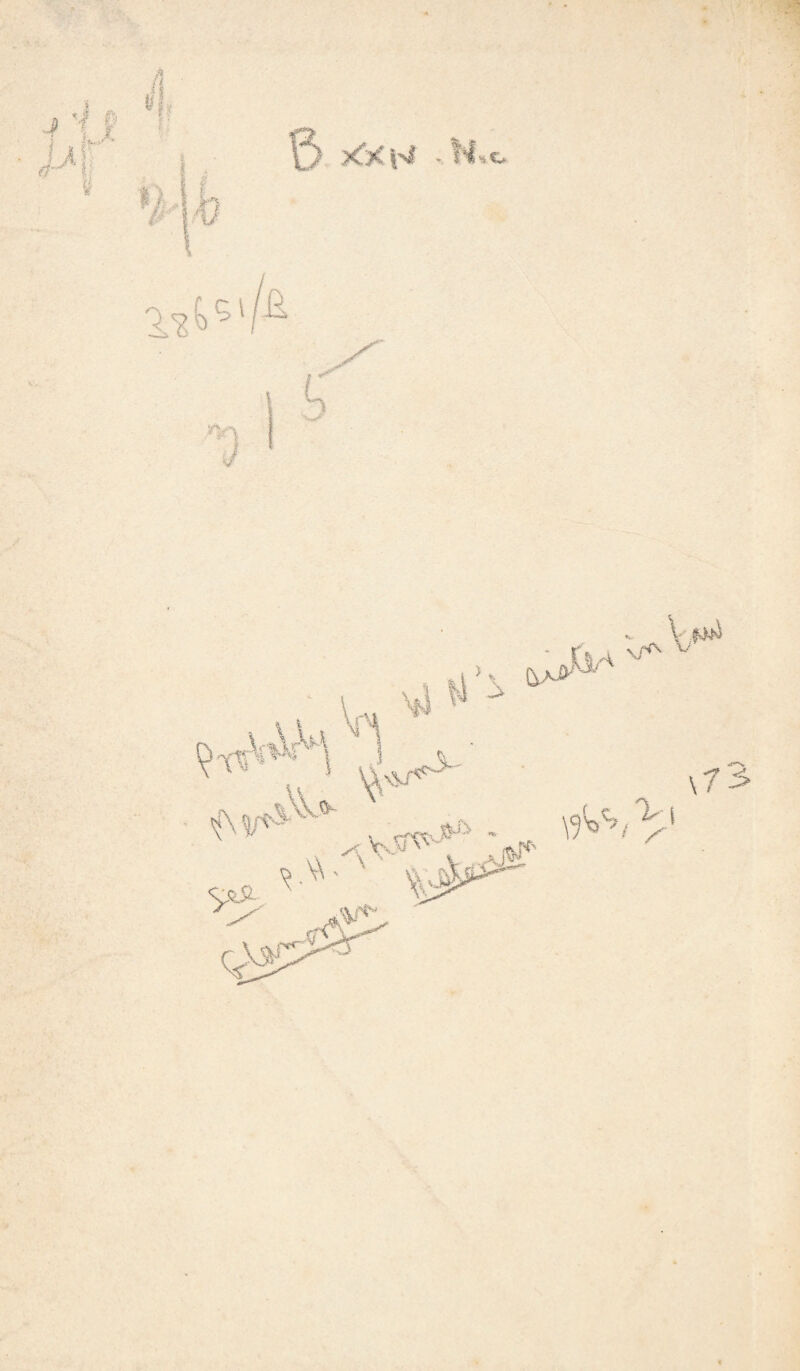 Life of
B XXIV . N.c.
2/6
38651/B
Probably by W N's sister in law
Hume
See P.H. Thomas . 1965, 2, 173
Glamorgan Historian